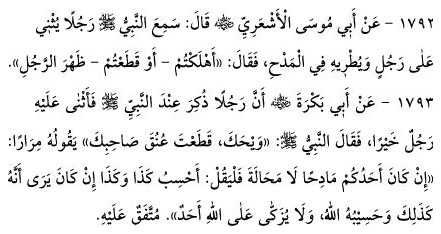 ١٧٩٢ - عَنْ أَبِي مُوسَى الْأَشْعَرِيِّ ﵁ قَالَ: سَمِعَ النَّبِيُّ ﷺ رَجُلًا يُثْنِي
عَلَى رَجُلٍ وَيُطْرِيهِ فِي الْمَدْحِ، فَقَالَ: «أَهْلَكْتُمْ - أَوْ قَطَعْتُمْ - ظَهْرَ الرَّجُلِ».
١٧٩٣ - عَنْ أَبِي بَكْرَةَ ﵁ أَنَّ رَجُلًا ذُكِرَ عِنْدَ النَّبِيِّ ﷺ فَأَثْنَى عَلَيْهِ
رَجُلٌ خَيْرًا، فَقَالَ النَّبِيُّ ﷺ: «وَيْحَكَ، قَطَعْتَ عُنُقَ صَاحِبِكَ» يَقُولُهُ مِرَارًا:
«إِنْ كَانَ أَحَدُكُمْ مَادِحًا لَا مَحَالَةَ فَلْيَقُلْ: أَحْسِبُ كَذَا وَكَذَا إِنْ كَانَ يَرَى أَنَّهُ
كَذَلِكَ وَحَسِيْبُهُ اللهُ، وَلَا يُزَكَّى عَلَى اللهِ أَحَدٌ». مُتَّفَقٌ عَلَيْهِ.